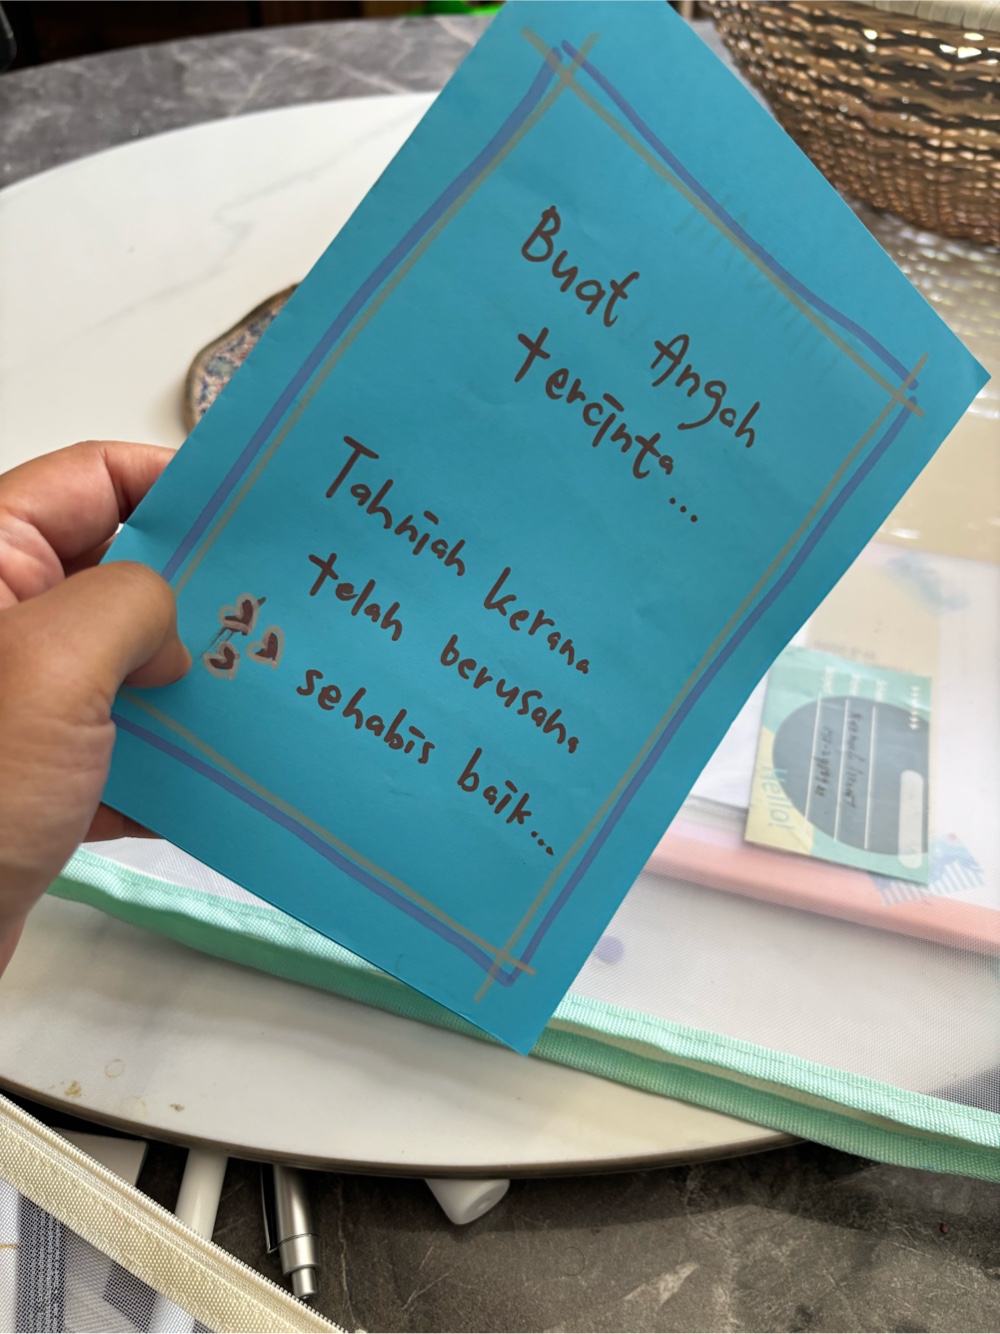 Buat Angah
tercinta...
Tahniah kerana
telah berusaha
sehabis baik...
Hello!